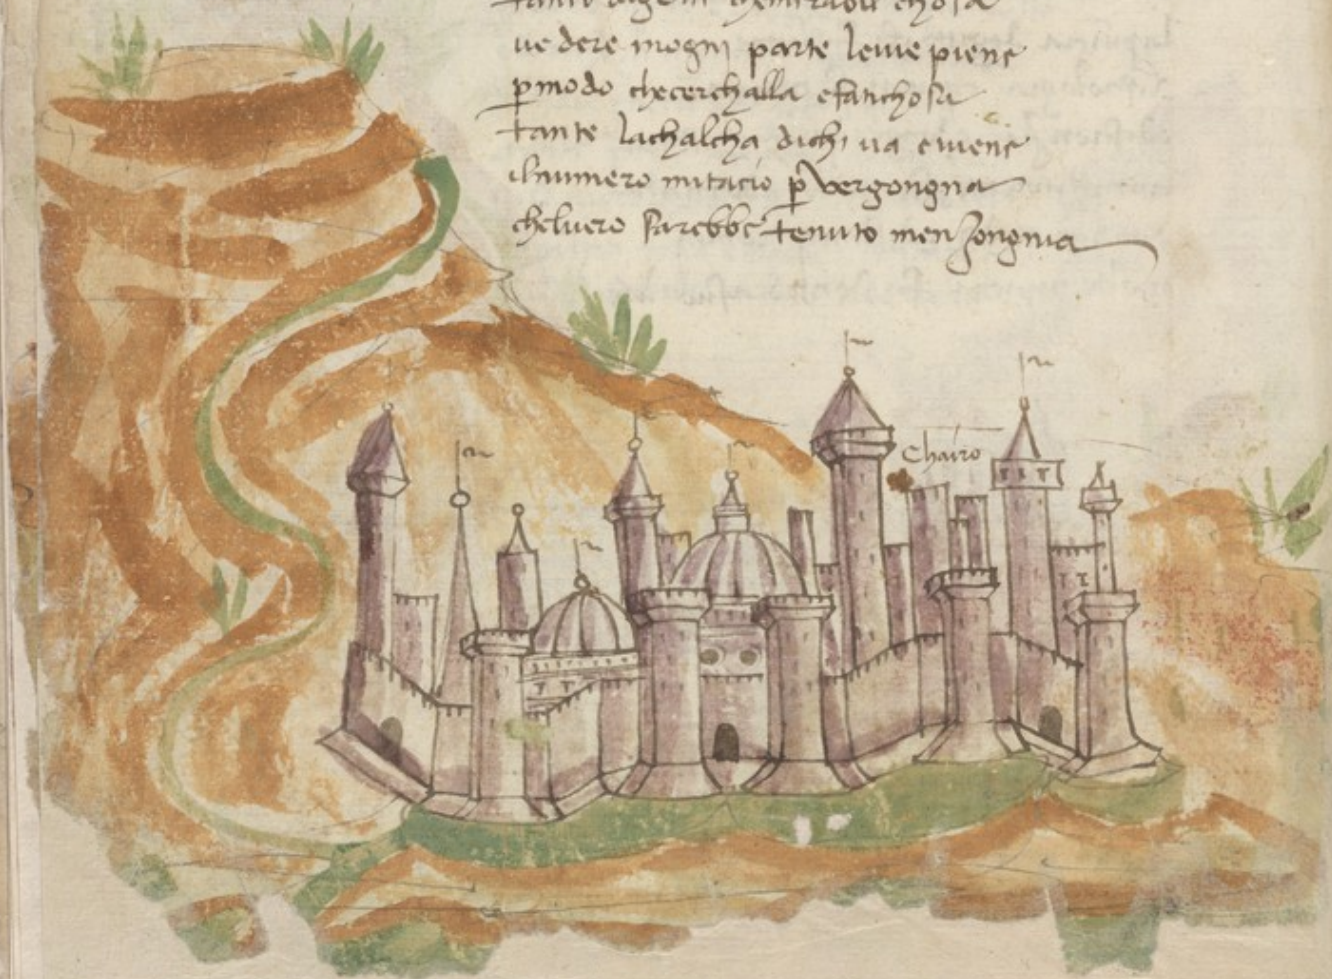 vedere inogni parte levie piene
p̱modo checerchalla efatichosa
tante lachalcha dichi va eviene
ilnumero mitacio p̱ vergongna
chelvero sarebbe tenuto menzongnia
Chairo